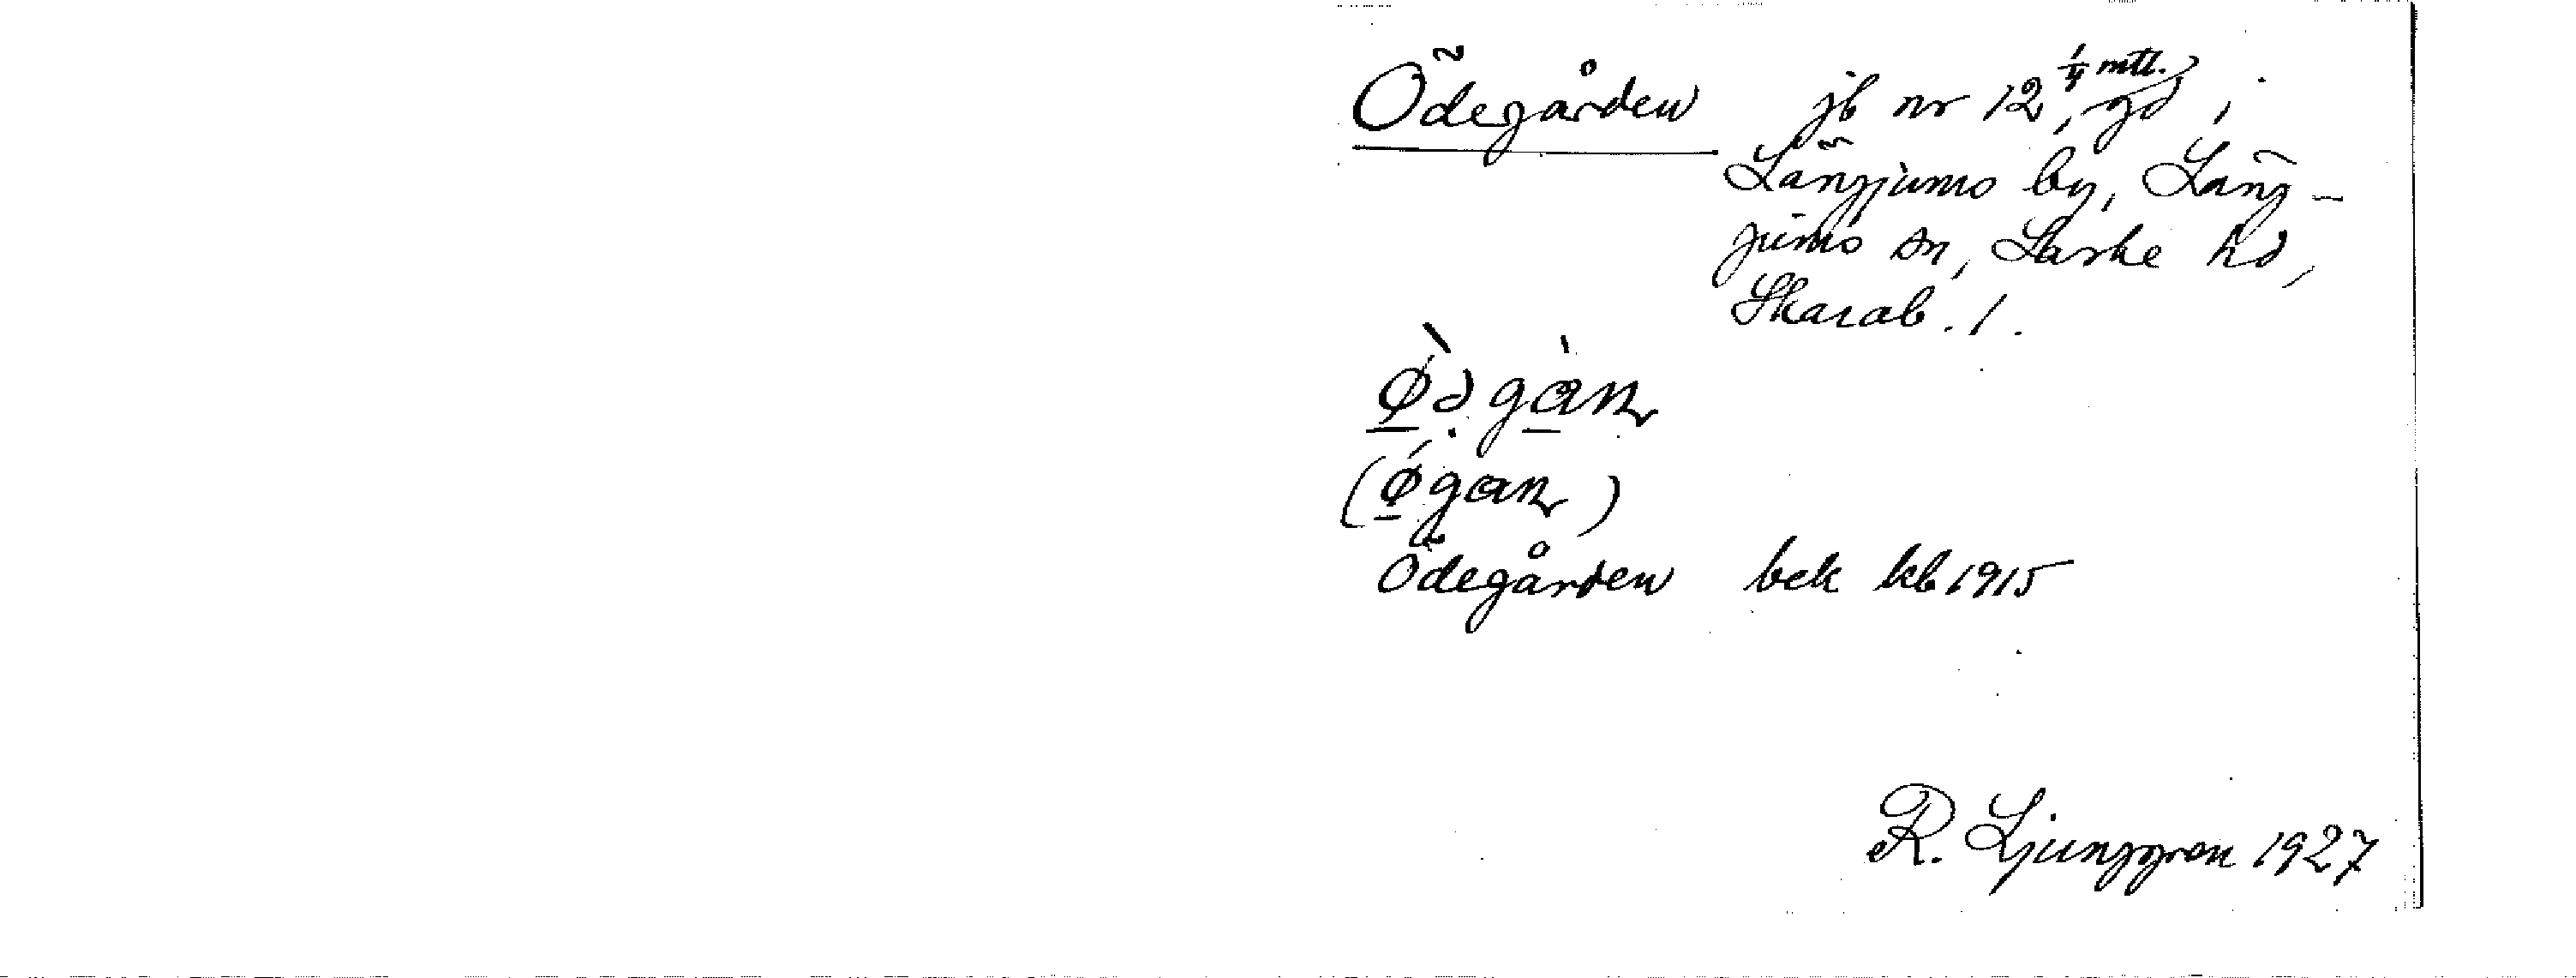 Ödegården jb nr 12, 1/4 mtl. gd i
Längjums by, Läng-
jums sn, Laske hd,
Skarab. l.
Ödegården bek kb 1915
R. Ljunggren 1927